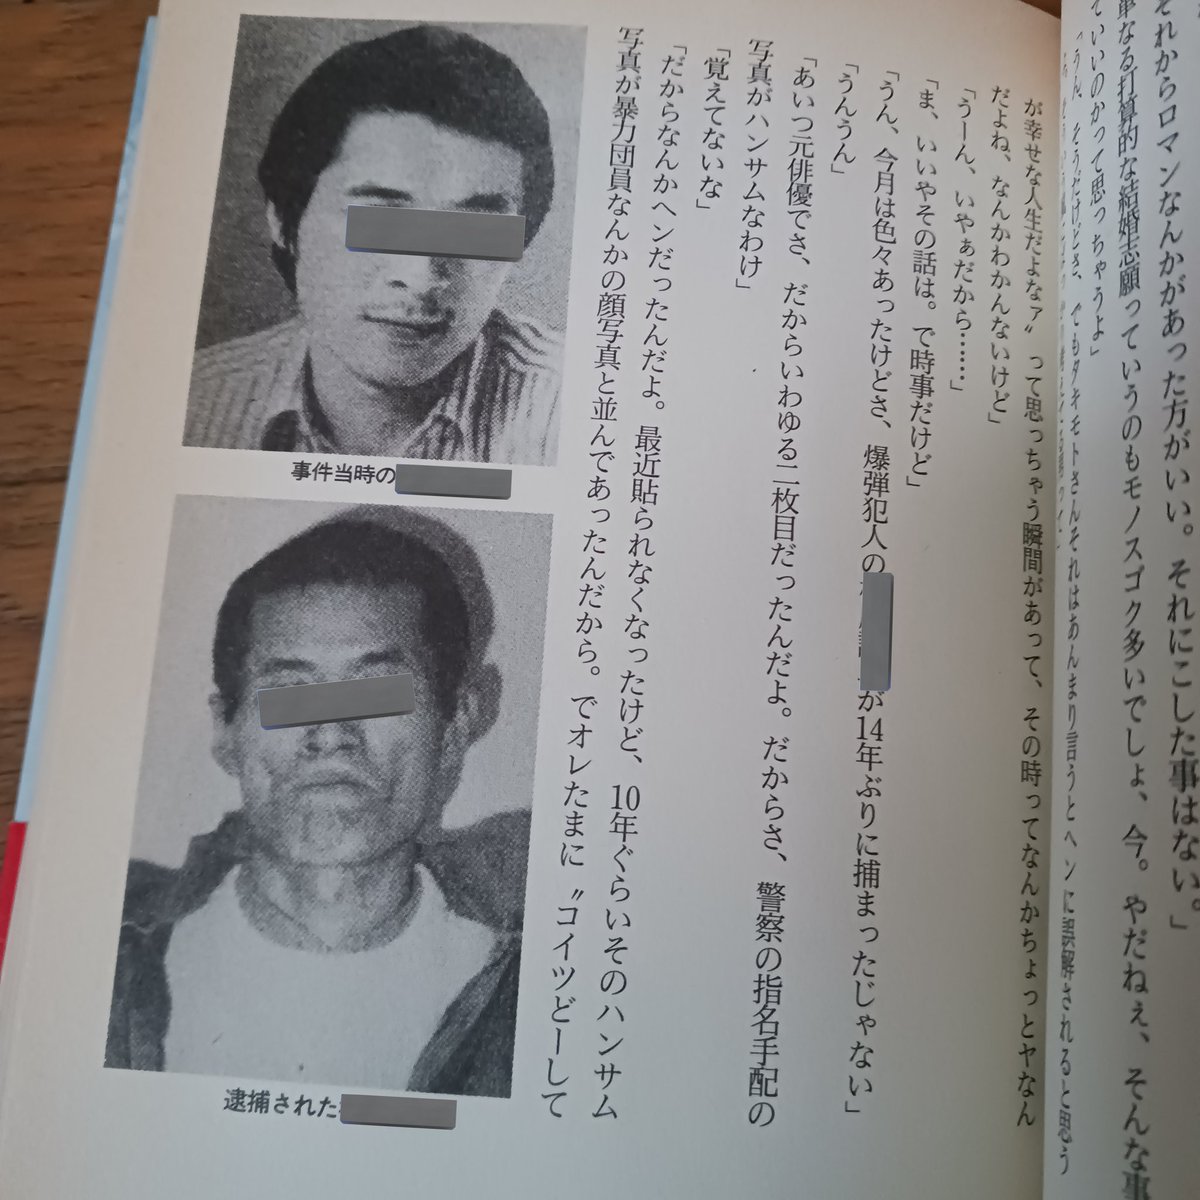 それからロマンなんかがあった方がいい。それにこした事はない。」
単なる打算的な結婚志願っていうのもモノスゴク多いでしょ、今。やだねぇ、そんな事
ていいのかって思っちゃうよ」
「うん、そうだけどさ、でもタキモトさんそれはあんまり言うとヘンに誤解されると思う
が幸せな人生だよなァ〟って思っちゃう瞬間があって、その時ってなんかちょっとヤなん
だよね、なんかわかんないけど」
「うーん、いやぁだから……」
「ま、いいやその話は。で時事だけど」
「うん、今月は色々あったけどさ、爆弾犯人の
が14年ぶりに捕まったじゃない」
「うんうん」
「あいつ元俳優でさ、だからいわゆる二枚目だったんだよ。だからさ、警察の指名手配の
写真がハンサムなわけ」
「覚えてないな」
「だからなんかヘンだったんだよ。最近貼られなくなったけど、10年ぐらいそのハンサム
写真が暴力団員なんかの顔写真と並んであったんだから。でオレたまに〝コイツどーして
事件当時の
逮捕された